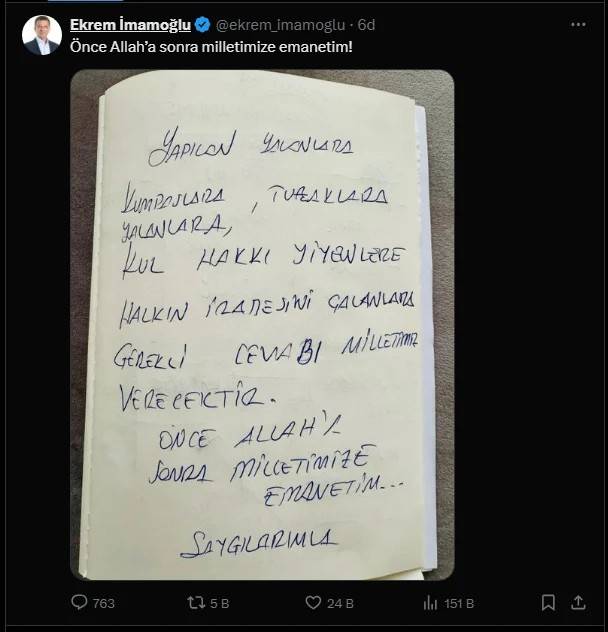 Ekrem İmamoğlu @ekrem_imamoglu · 6d
Önce Allah'a sonra milletimize emanetim!
YAPILAN YALANLARA
KUMPASLARA, TUZAKLARA
YALANLARA,
KUL HAKKI YİYENLERE
HALKIN İRADESİNİ ÇALANLARA
GEREKLİ CEVABI MİLLETİMİZ
VERECEKTİR.
ÖNCE ALLAH'A
SONRA MİLLETİMİZE
EMANETİM...
SAYGILARIMLA
763 5 B 24 B 151 B